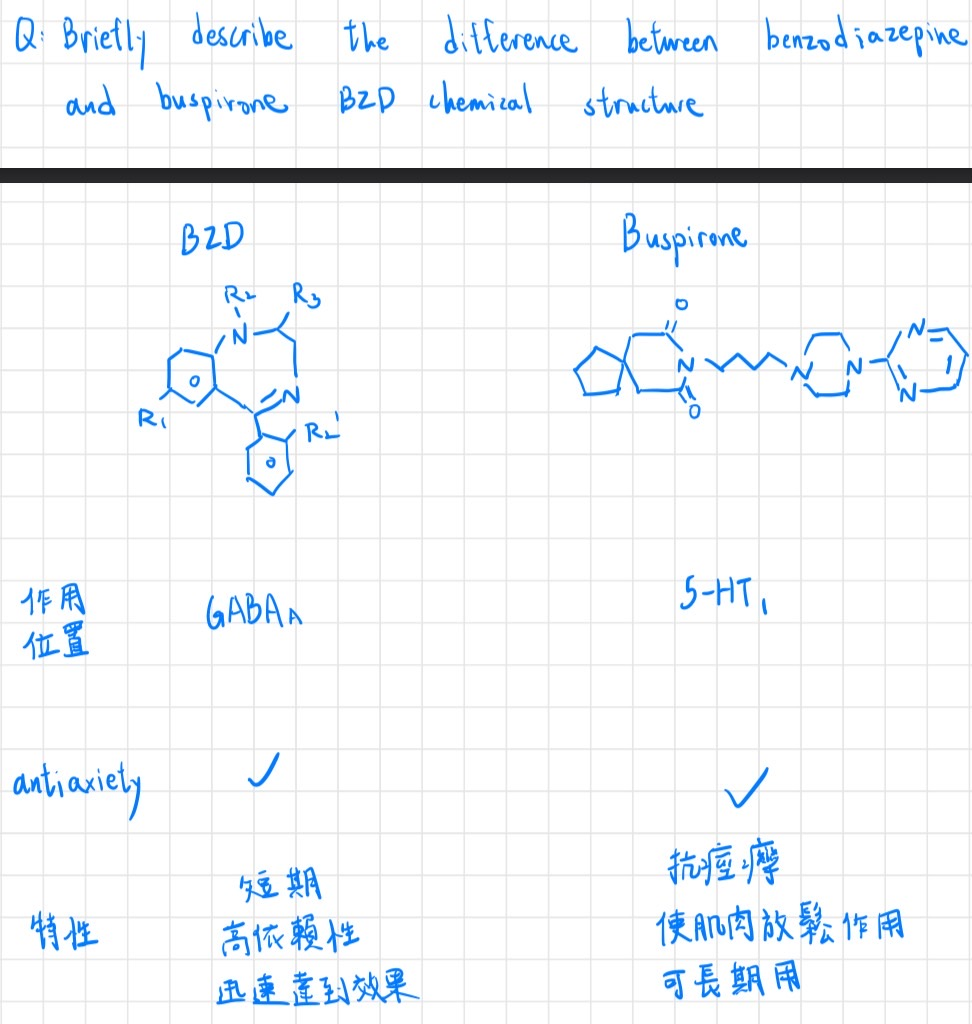 Q: Briefly describe the difference between benzodiazepine
and buspirone BZD chemical structure
BZD
Buspirone
R₂ R₃
N
N
R₁
R₂'
O
N
O
N
N
N
N
作用
位置
GABA_A
5-HT₁
antiaxiety
✓
✓
特性
短期
高依賴性
迅速達到效果
抗痙攣
使肌肉放鬆作用
可長期用